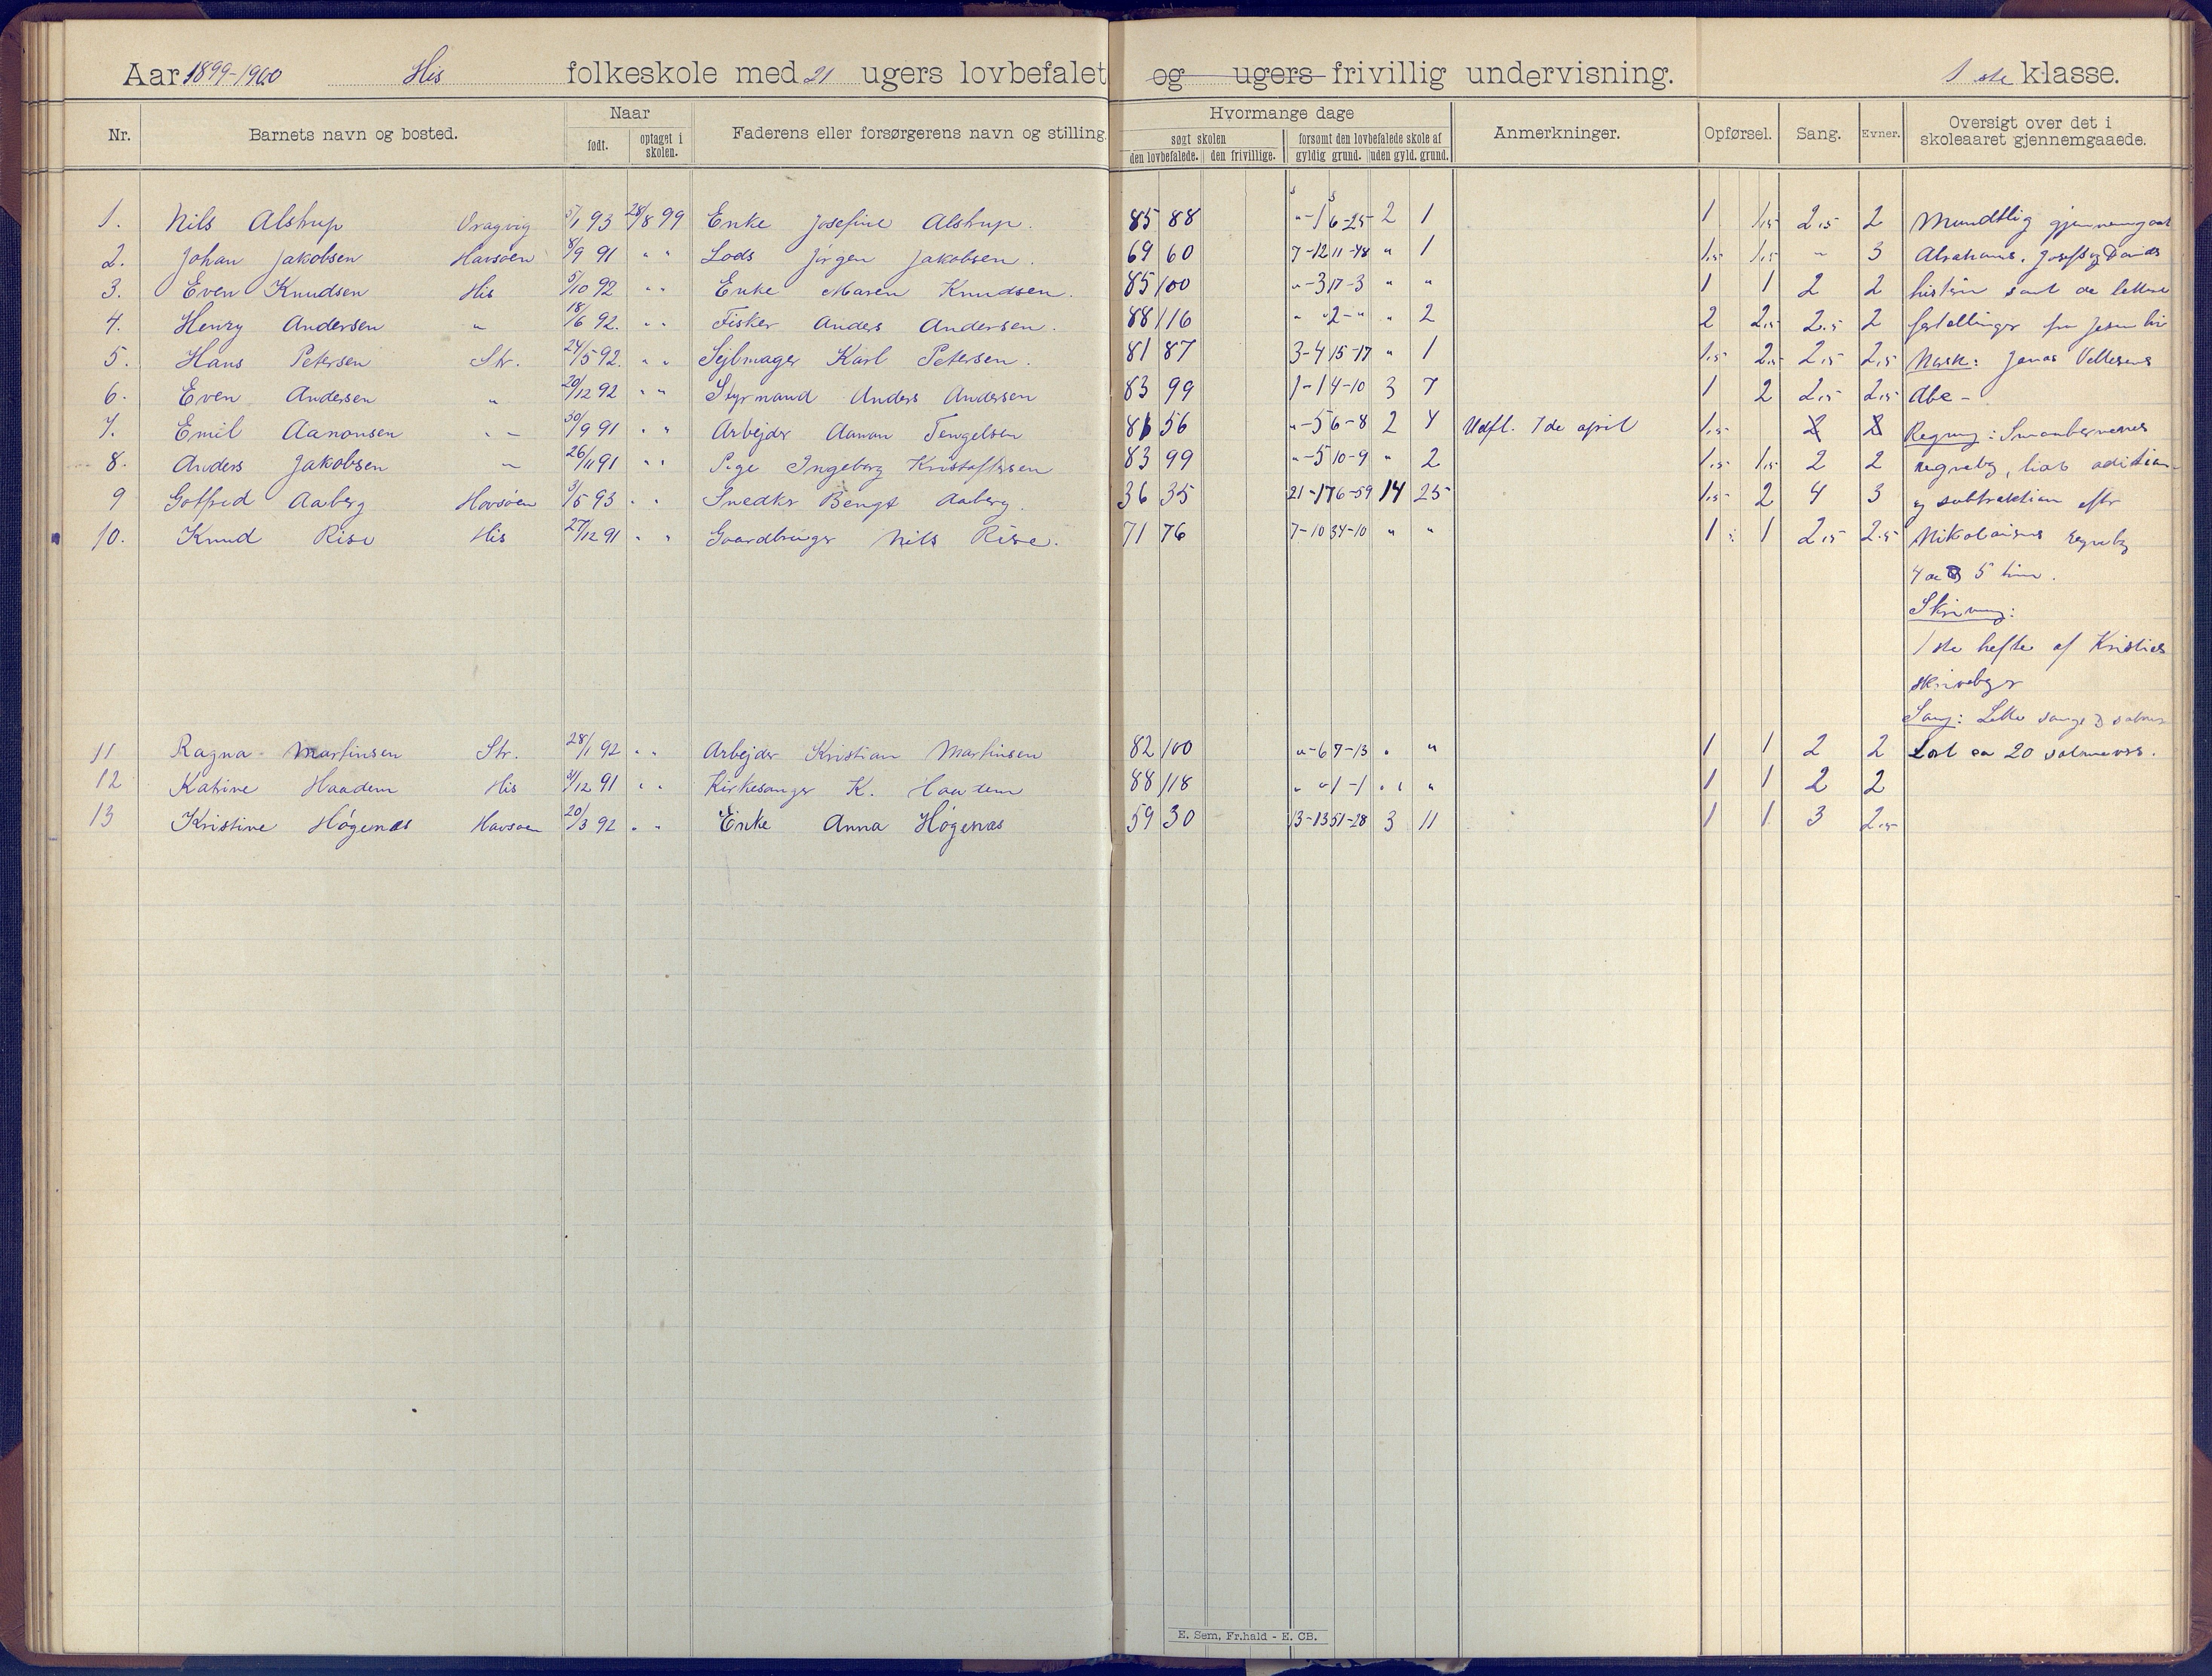 Aar 1899-1900 His folkeskole med 21 ugers lovbefalet og ugers frivillig undervisning. 1ste klasse.
Nr. Barnets navn og bosted. Naar født. optaget i skolen. Faderens eller forsørgerens navn og stilling. Hvormange dage søgt skolen den lovbefalede. den frivillige. forsømt den lovbefalede skole af gyldig grund. uden gyld. grund. Anmerkninger. Opførsel. Sang. Evner. Oversigt over det i skoleaaret gjennemgaaede.
1. Nils Alstrup Vragvig 5/1 93 28/8 99 Enke Josefine Alstrup. 85 88 "-1 6-25 2 1 1 1,5 2,5 2 Mundtlig gjennemgaat
2. Johan Jakobsen Havsøen 8/9 91 " " Lods Jørgen Jakobsen. 69 60 7-12 11-48 " 1 1,5 1,5 " 3 Abrahams, Josefs og Davids
3. Even Knudsen His 5/10 92 " " Enke Maren Knudsen. 85 100 "-3 17-3 " " 1 1 2 2 historie samt de lettere
4. Henry Andersen " 18/6 92. " " Fisker Anders Andersen. 88 116 " " 2-" " 2 2 2,5 2,5 2 fortellinger fra Jesu liv
5. Hans Petersen Str. 24/5 92. " " Sejlmager Karl Petersen. 81 87 3-4 15-17 " 1 1,5 2,5 2,5 2,5 Norsk: Jonas Vellesens
6. Even Andersen " 20/12 92 " " Styrmand Anders Andersen 83 99 1-1 4-10 3 7 1 2 2,5 2,5 Abc-
7. Emil Aanonsen " 30/9 91 " " Arbejder Aanon Tengelsen 81 56 "-5 6-8 2 4 Udfl. 7de april 1,5 2 2 Regning: Smaabørnenes
8. Anders Jakobsen " 26/11 91 " " Pige Ingeborg Kristoffersen 83 99 "-5 10-9 " 2 1,5 1,5 2 2 regnebog, lidt adition
9 Gotfred Aaberg Havsøen 3/5 93 " " Snedker Bengt Aaberg. 36 35 21-17 6-59 14 25 1,5 2 4 3 og subtraktion efter
10. Knud Rise His 27/12 91 " " Gaardbruger Nils Rise. 71 76 7-10 34-10 " " 1 1 2,5 2,5 Nikolaisens regnebog
4 de og 5 time.
Skrivning:
1ste hefte af Kristies
skrivebøger
Sang: Lette sange og salmer
11 Ragna Martinsen Str. 28/1 92 " " Arbejder Kristian Martinsen 82 100 "-6 7-13 " " 1 1 2 2 Lært ca 20 salmevers.
12 Katrine Haadem His 31/12 91 " " Kirkesanger K. Haadem 88 118 " "1-1 " " 1 1 2 2
13 Kristine Høgenæs Havsøen 20/3 92 " " Enke Anna Høgenæs 59 30 13-13 51-28 3 11 1 1 3 2,5
E. Sem, Fr.hald - E. CB.